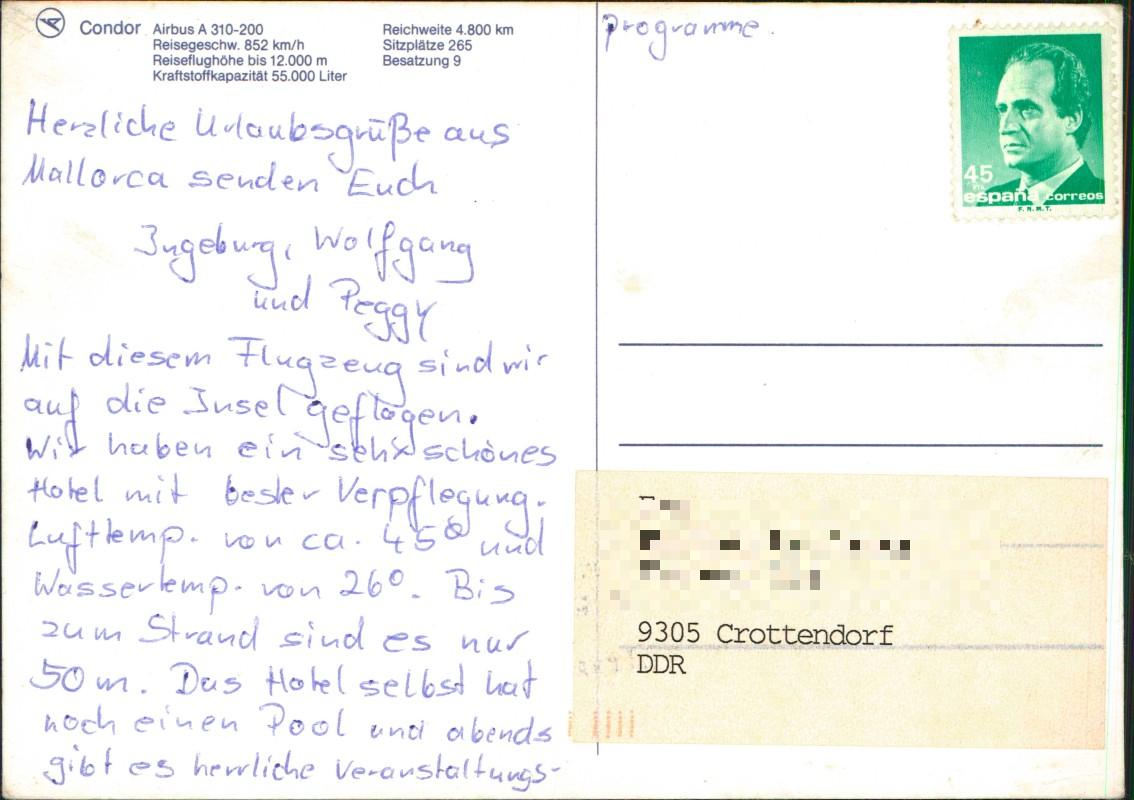 Condor
Airbus A 310-200
Reisegeschw. 852 km/h
Reiseflughöhe bis 12.000 m
Kraftstoffkapazität 55.000 Liter
Reichweite 4.800 km
Sitzplätze 265
Besatzung 9
Herzliche Urlaubsgrüße aus
Mallorca senden Euch
Ingeburg, Wolfgang
und Peggy
Mit diesem Flugzeug sind wir
auf die Insel geflogen.
Wir haben ein sehr schönes
Hotel mit bester Verpflegung.
Lufttemp. von ca. 45° und
Wassertemp. von 26°. Bis
zum Strand sind es nur
50 m. Das Hotel selbst hat
noch einen Pool und abends
gibt es herrliche Veranstaltungs-
programme.
45
PTA
españa correos
F.N.M.T.
9305 Crottendorf
DDR